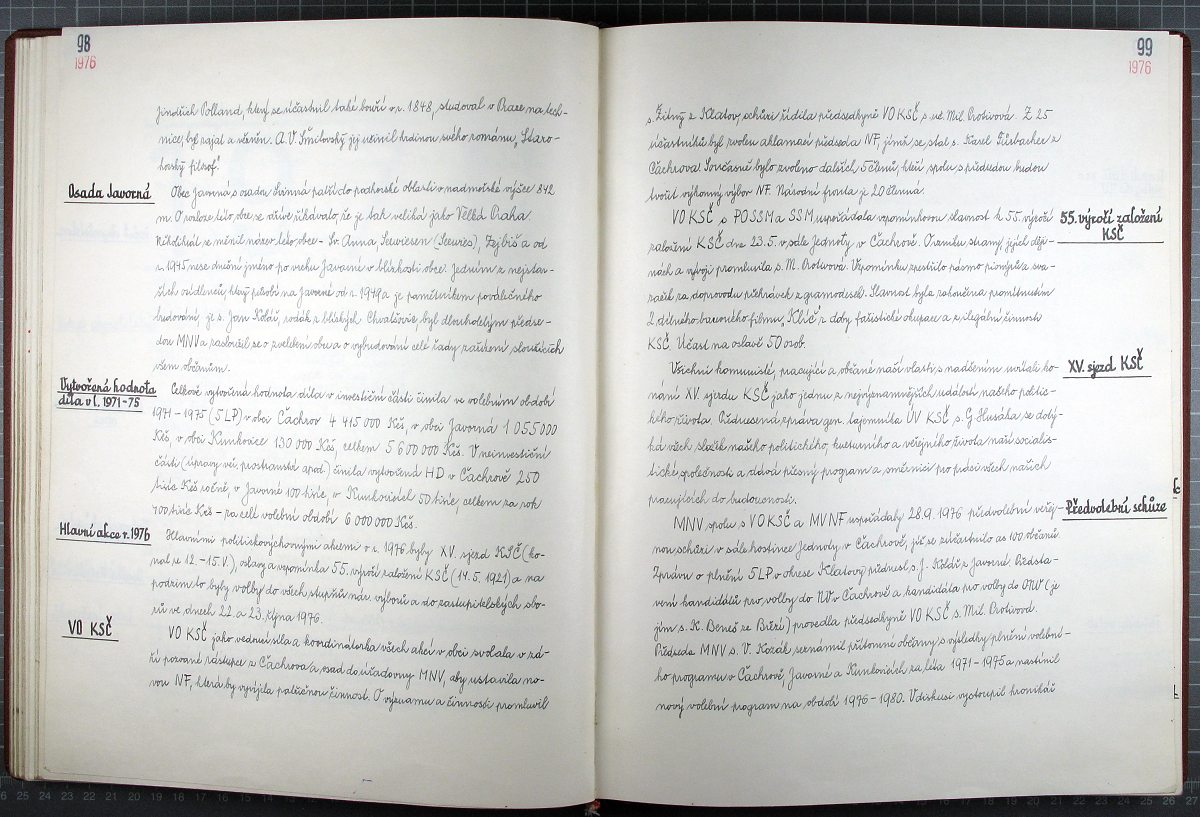 98
1976
Jindřich Polland, který se účastnil také bouří v r. 1848, studoval v Praze na tech-
nice, byl zajat a vězněn. A. V. Šmilovský jej učinil hrdinou svého románu „Staro-
horský filosof“.
Osada Javorná
Obec Javorná s osadou Svinná patří do podhorské oblasti v nadmořské výšce 842
m. O rozloze této obce se dříve říkávalo, že je tak veliká jako Velká Praha.
Několikrát se měnil název této obce - Sv. Anna, Seewiesen (Seewis), Zejbiš a od
r. 1945 nese dnešní jméno po vrchu Javorné v blízkosti obce. Jedním z nejstar-
ších osídlenců, který působí na Javorné od r. 1949 a je pamětníkem poválečného
budování, je s. Jan Kolář, rodák z blízkých Chvalšovic, byl dlouholetým předse-
dou MNV a zasloužil se o zvelebení obce a o vybudování celé řady zařízení sloužících
všem občanům.
Vytvořená hodnota
díla v l. 1971-75
Celkově vytvořená hodnota díla v investiční části činila ve volebním období
1971 - 1975 (5 LP) v obci Čachrov 4 415 000 Kčs, v obci Javorná 1 055 000
Kčs, v obci Kunkovice 130 000 Kčs, celkem 5 600 000 Kčs. V neinvestiční
části (úpravy veř. prostranství apod.) činila vytvořená HD v Čachrově 250
tisíc Kčs ročně, v Javorné 100 tisíc, v Kunkovicích 50 tisíc, celkem za rok
400 tisíc Kčs - za celé volební období 6 000 000 Kčs.
Hlavní akce r. 1976
Hlavními politickovýchovnými akcemi v r. 1976 byly XV. sjezd KSČ (ko-
nal se 12. - 15. V.), oslavy a vzpomínka 55. výročí založení KSČ (14. 5. 1921) a na
podzim to byly volby do všech stupňů nár. výborů a do zastupitelských sbo-
rů ve dnech 22. a 23. října 1976.
VO KSČ
VO KSČ jako vedoucí síla a koordinátorka všech akcí v obci svolala v zá-
ří pozvané zástupce z Čachrova a osad do úřadovny MNV, aby ustavila no-
vou NF, která by vyvíjela patřičnou činnost. O významu a činnosti promluvil
99
1976
s. Žitný z Klatov, schůzi řídila předsedkyně VO KSČ s. uč. Mil. Protivová. Z 25
účastníků byl zvolen aklamací předseda NF, jímž se stal s. Karel Fürbacher z
Čachrova. Současně bylo zvoleno dalších 5 členů, kteří spolu s předsedou budou
tvořit výkonný výbor NF. Národní fronta je 20 členná.
55. výročí založení
KSČ
VO KSČ s POSSM a SSM uspořádala vzpomínkovou slavnost k 55. výročí
založení KSČ dne 23. 5. v sále Jednoty v Čachrově. O vzniku strany, jejích ději-
nách a vývoji promluvila s. M. Protivová. Vzpomínku zpestřilo pásmo pionýrů a sva-
záků za doprovodu přehrávek z gramodesek. Slavnost byla zakončena promítnutím
2 dílného barevného filmu „Klíč“ z doby fašistické okupace a z ilegální činnosti
KSČ. Účast na oslavě 50 osob.
XV. sjezd KSČ
Všichni komunisté, pracující a občané naší vlasti s nadšením uvítali ko-
nání XV. sjezdu KSČ jako jednu z nejvýznamnějších událostí našeho politic-
kého života. Přednesená zpráva gen. tajemníka ÚV KSČ s. G. Husáka se dotý-
ká všech složek našeho politického, kulturního a veřejného života naší socialis-
tické společnosti a dává přesný program a směrnici pro práci všech našich
pracujících do budoucnosti.
Předvolební schůze
MNV spolu s VO KSČ a MVNF uspořádaly 28. 9. 1976 předvolební veřej-
nou schůzi v sále hostince Jednoty v Čachrově, jíž se zúčastnilo as 100 občanů.
Zprávu o plnění 5 LP v okrese Klatovy přednesl s. J. Kolář z Javorné. Předsta-
vení kandidátů pro volby do NV v Čachrově a kandidáta pro volby do ONV (je
jím s. K. Beneš ze Březí) provedla předsedkyně VO KSČ s. Mil. Protivová.
Předseda MNV s. V. Kozák seznámil přítomné občany s výsledky plnění volební-
ho programu v Čachrově, Javorné a Kunkovicích za léta 1971 - 1975 a nastínil
nový volební program na období 1976 - 1980. V diskusi vystoupil kronikář